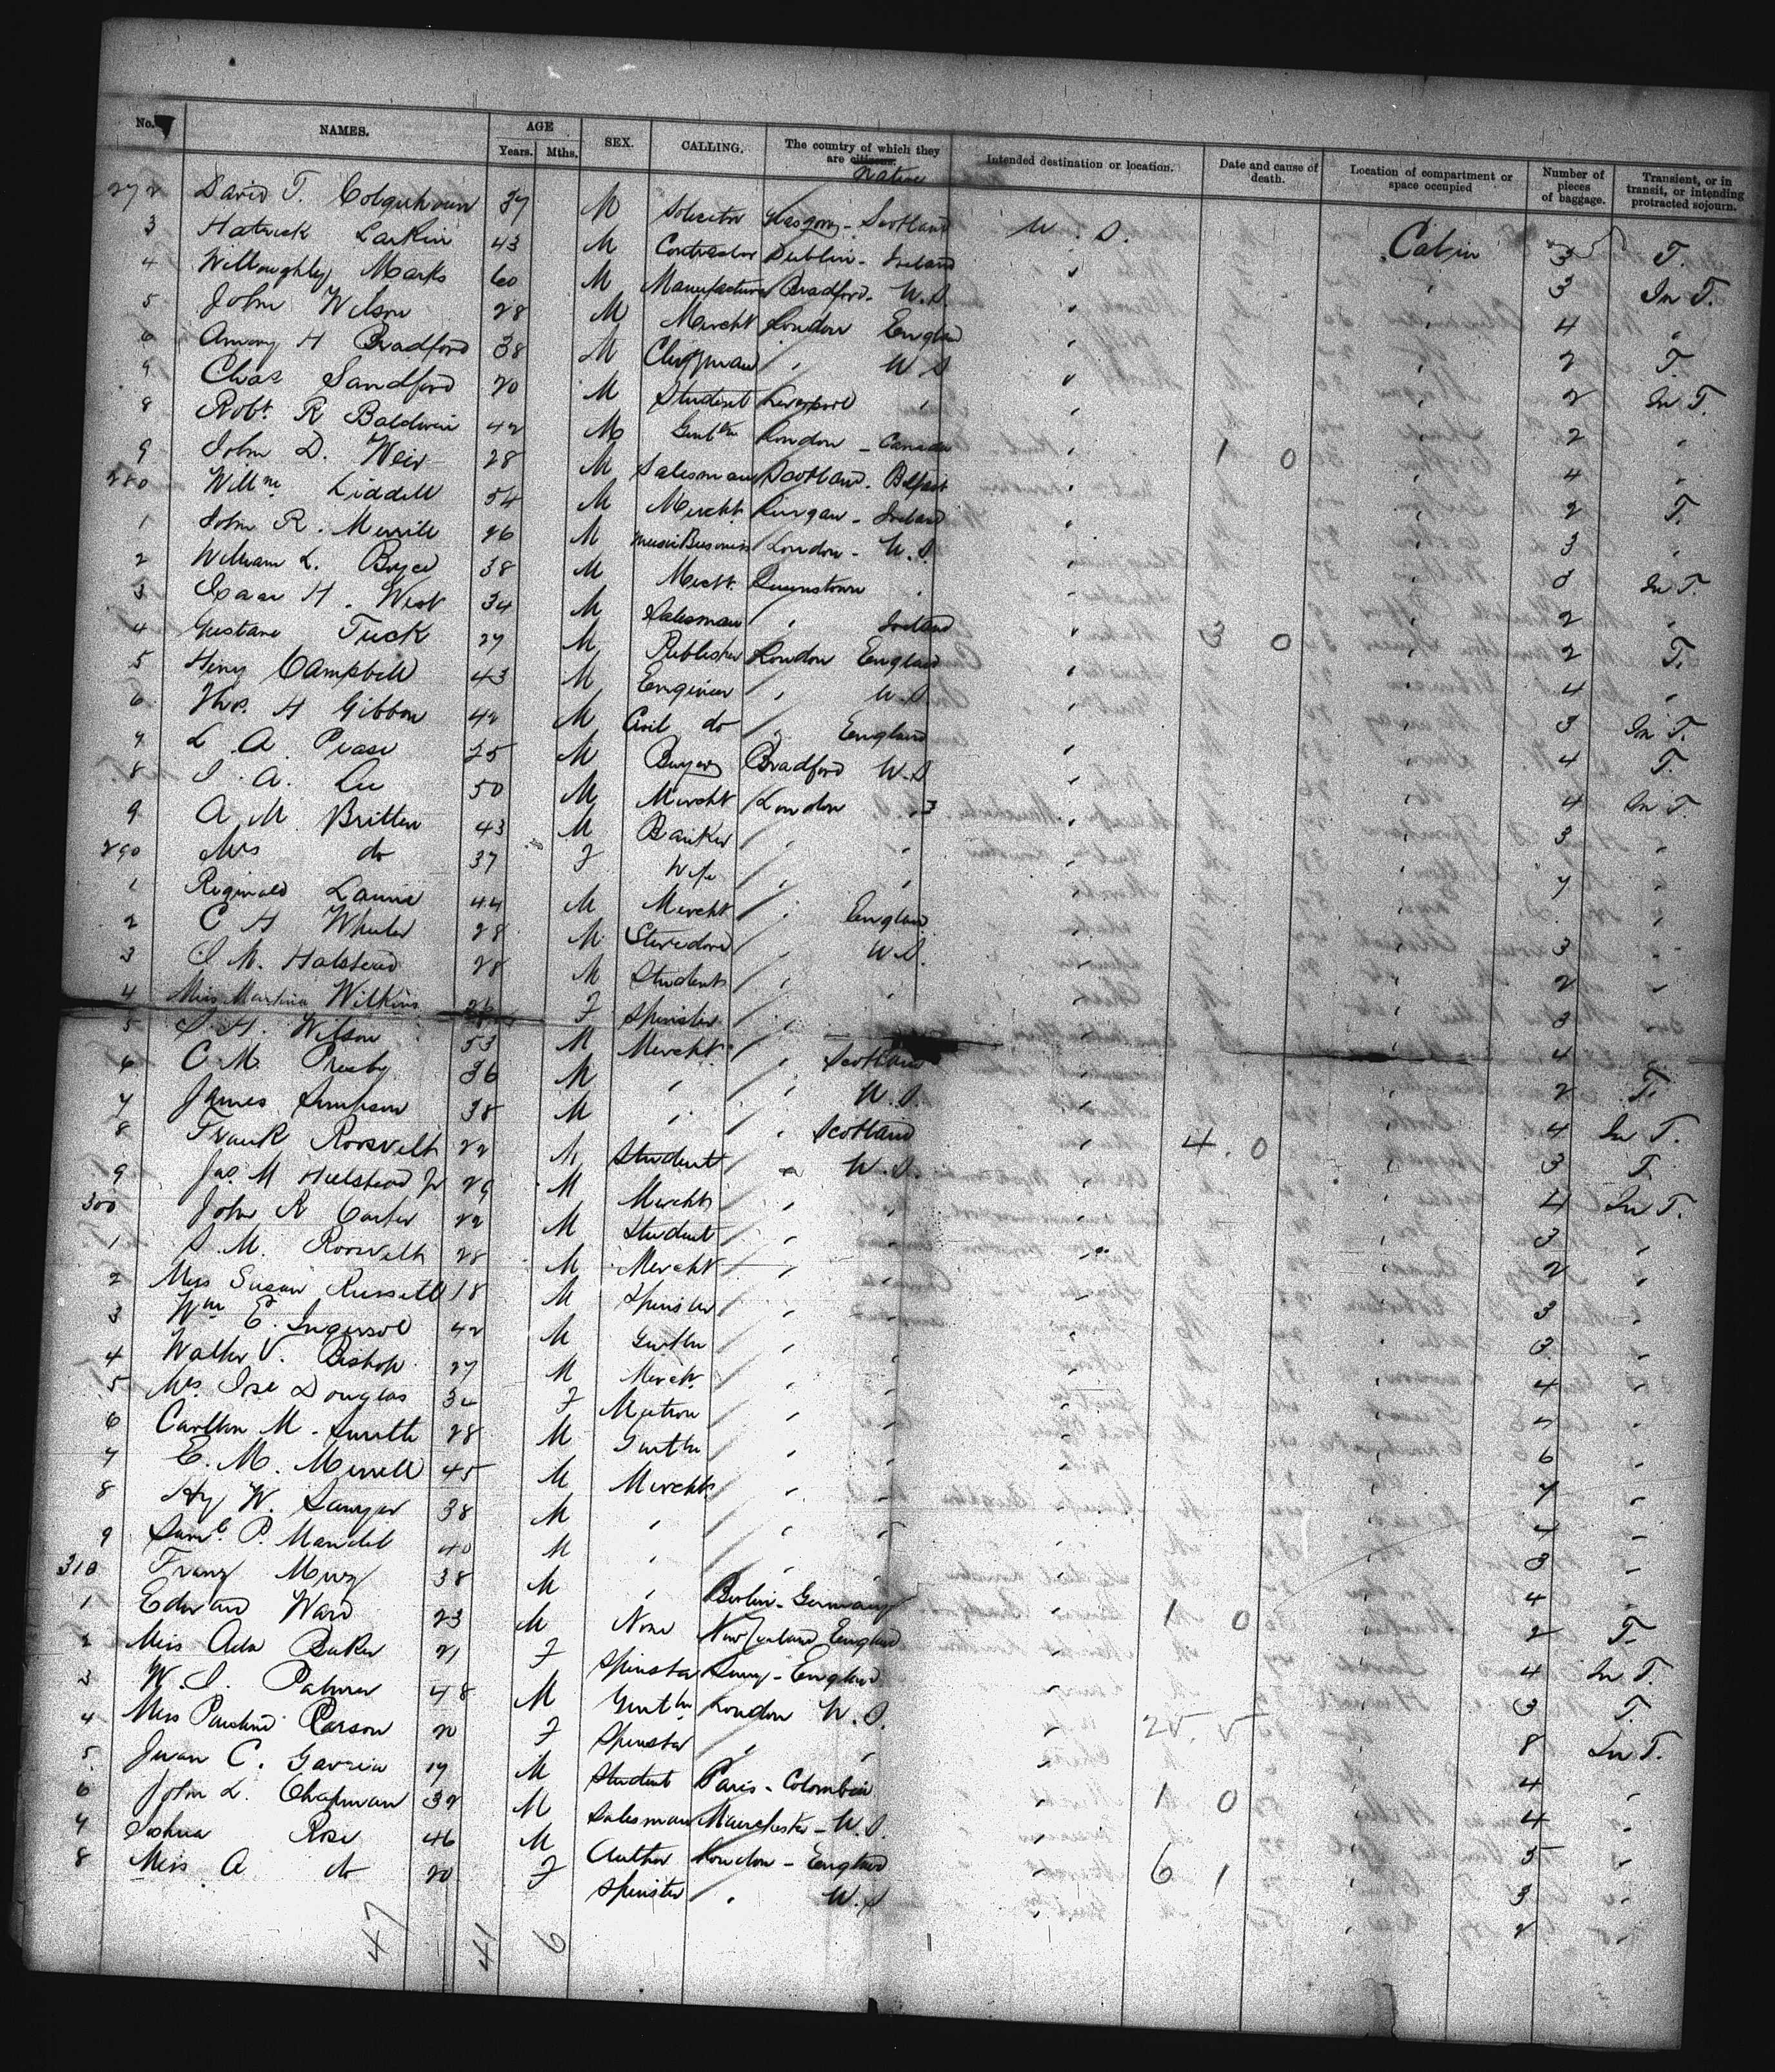 No. NAMES. AGE Years. Mths. SEX. CALLING. The country of which they are citizens. Native Intended destination or location. Date and cause of death. Location of compartment or space occupied Number of pieces of baggage. Transient, or in transit, or intending protracted sojourn.
272 David T. Colquhoun 37 M Solicitor Glasgow - Scotland U.S. Cabin 3 T.
3 Larkin 43 M Contractor Dublin - Ireland " " 3 In T.
4 Willoughby Marks 60 M Manufacturer Bradford - U.S. " " 4 "
5 John Wilson 28 M Mercht London England " " 2 T.
6 Amory H Bradford 38 M Clergyman " U.S " " 2 In T.
7 Chas Sandford 20 M Student Liverpool " " " 2 "
8 Robt. R Baldwin 42 M Gentln London - Canada " 1 0 " 4 "
9 John D. Weir 28 M Salesman Scotland - Belfast " " 2 T.
280 Willm. Liddell 54 M Mercht. Lurgan - Ireland " " 3 "
1 John R. Merrill 26 M Music Business London - U.S. " " 3 In T.
2 William L. Boyce 38 M Mercht. Queenstown " " 2 "
3 Isaac H. West 34 M Salesman " Ireland " 3 0 " 2 T.
4 Gustave Tuck 27 M Publisher London England " " 4 "
5 Henry Campbell 43 M Engineer " U.S " " 3 In T.
6 Thos. H Gibbon 42 M Civil do " England " " 4 T.
7 L. A. Pease 25 M Buyer Bradford U.S " " 4 In T.
8 J. A. Lee 50 M Mercht London " " " 3 "
9 A. M. Britton 43 M Banker " " " " 7 "
290 Mrs do 37 F Wife " " " "
1 Reginald Laurie 44 M Mercht " England " " 3 "
2 C H Wheeler 28 M Stevedore " U.S. " " 2 "
3 J. M. Halstead 28 M Student " " " 3 "
4 Miss Martina Wilkins 26 F Spinster " " " 4 "
5 J. H. Wilson 53 M Mercht. " Scotland " " 2 T.
6 C. M. 36 M " " U.S. " " 4 In T.
7 James Simpson 38 M " " Scotland " 4 0 " 3 T.
8 Frank Roosvelt 22 M Student " U.S. " " 4 In T.
9 Jas. M Halstead Jr 29 M Mercht " " " " 3 "
300 John R Carter 22 M Student " " " " 2 "
1 S. M. Roosvelt 28 M Mercht " " " " 3 "
2 Miss Susan Russell 18 M Spinster " " " " 3 "
3 Wm E. Ingersol 42 M Gentln " " " " 4 "
4 Walter V. Bishop 27 M Mercht. " " " "
5 Mrs. Douglas F Matron " " " " 6 "
6 Carlton M. Smith 28 M Gentln " " " " 7 "
7 E. M. Merrell 45 M Mercht " " " " 4 "
8 Hy W. Sawyer 38 M " " " " " 3 "
9 Saml. P. Mandel 40 M " " " " " 4 "
310 Franz 38 M " Berlin - Germany " 1 0 " 2 T.
1 Edward Ward 23 M None New Zealand England " " 4 In T.
2 Miss Ada Baker 21 F Spinster Surrey - England " " 3 T.
3 W. J. Palmer 48 M Gentln London U.S. " 25 5 " 8 In T.
4 Miss Pauline Carson 20 F Spinster " " " " 4 "
5 Juan C. Gavria 19 M Student Paris - Colombia " 1 0 " 4 "
6 John L. Chapman 32 M Salesman Manchester - U.S. " " 5 "
7 Joshua Rose 46 M Author London - England " 6 1 " 3 "
8 Miss A do 20 F Spinster " U.S " " 2 "
47 41 6